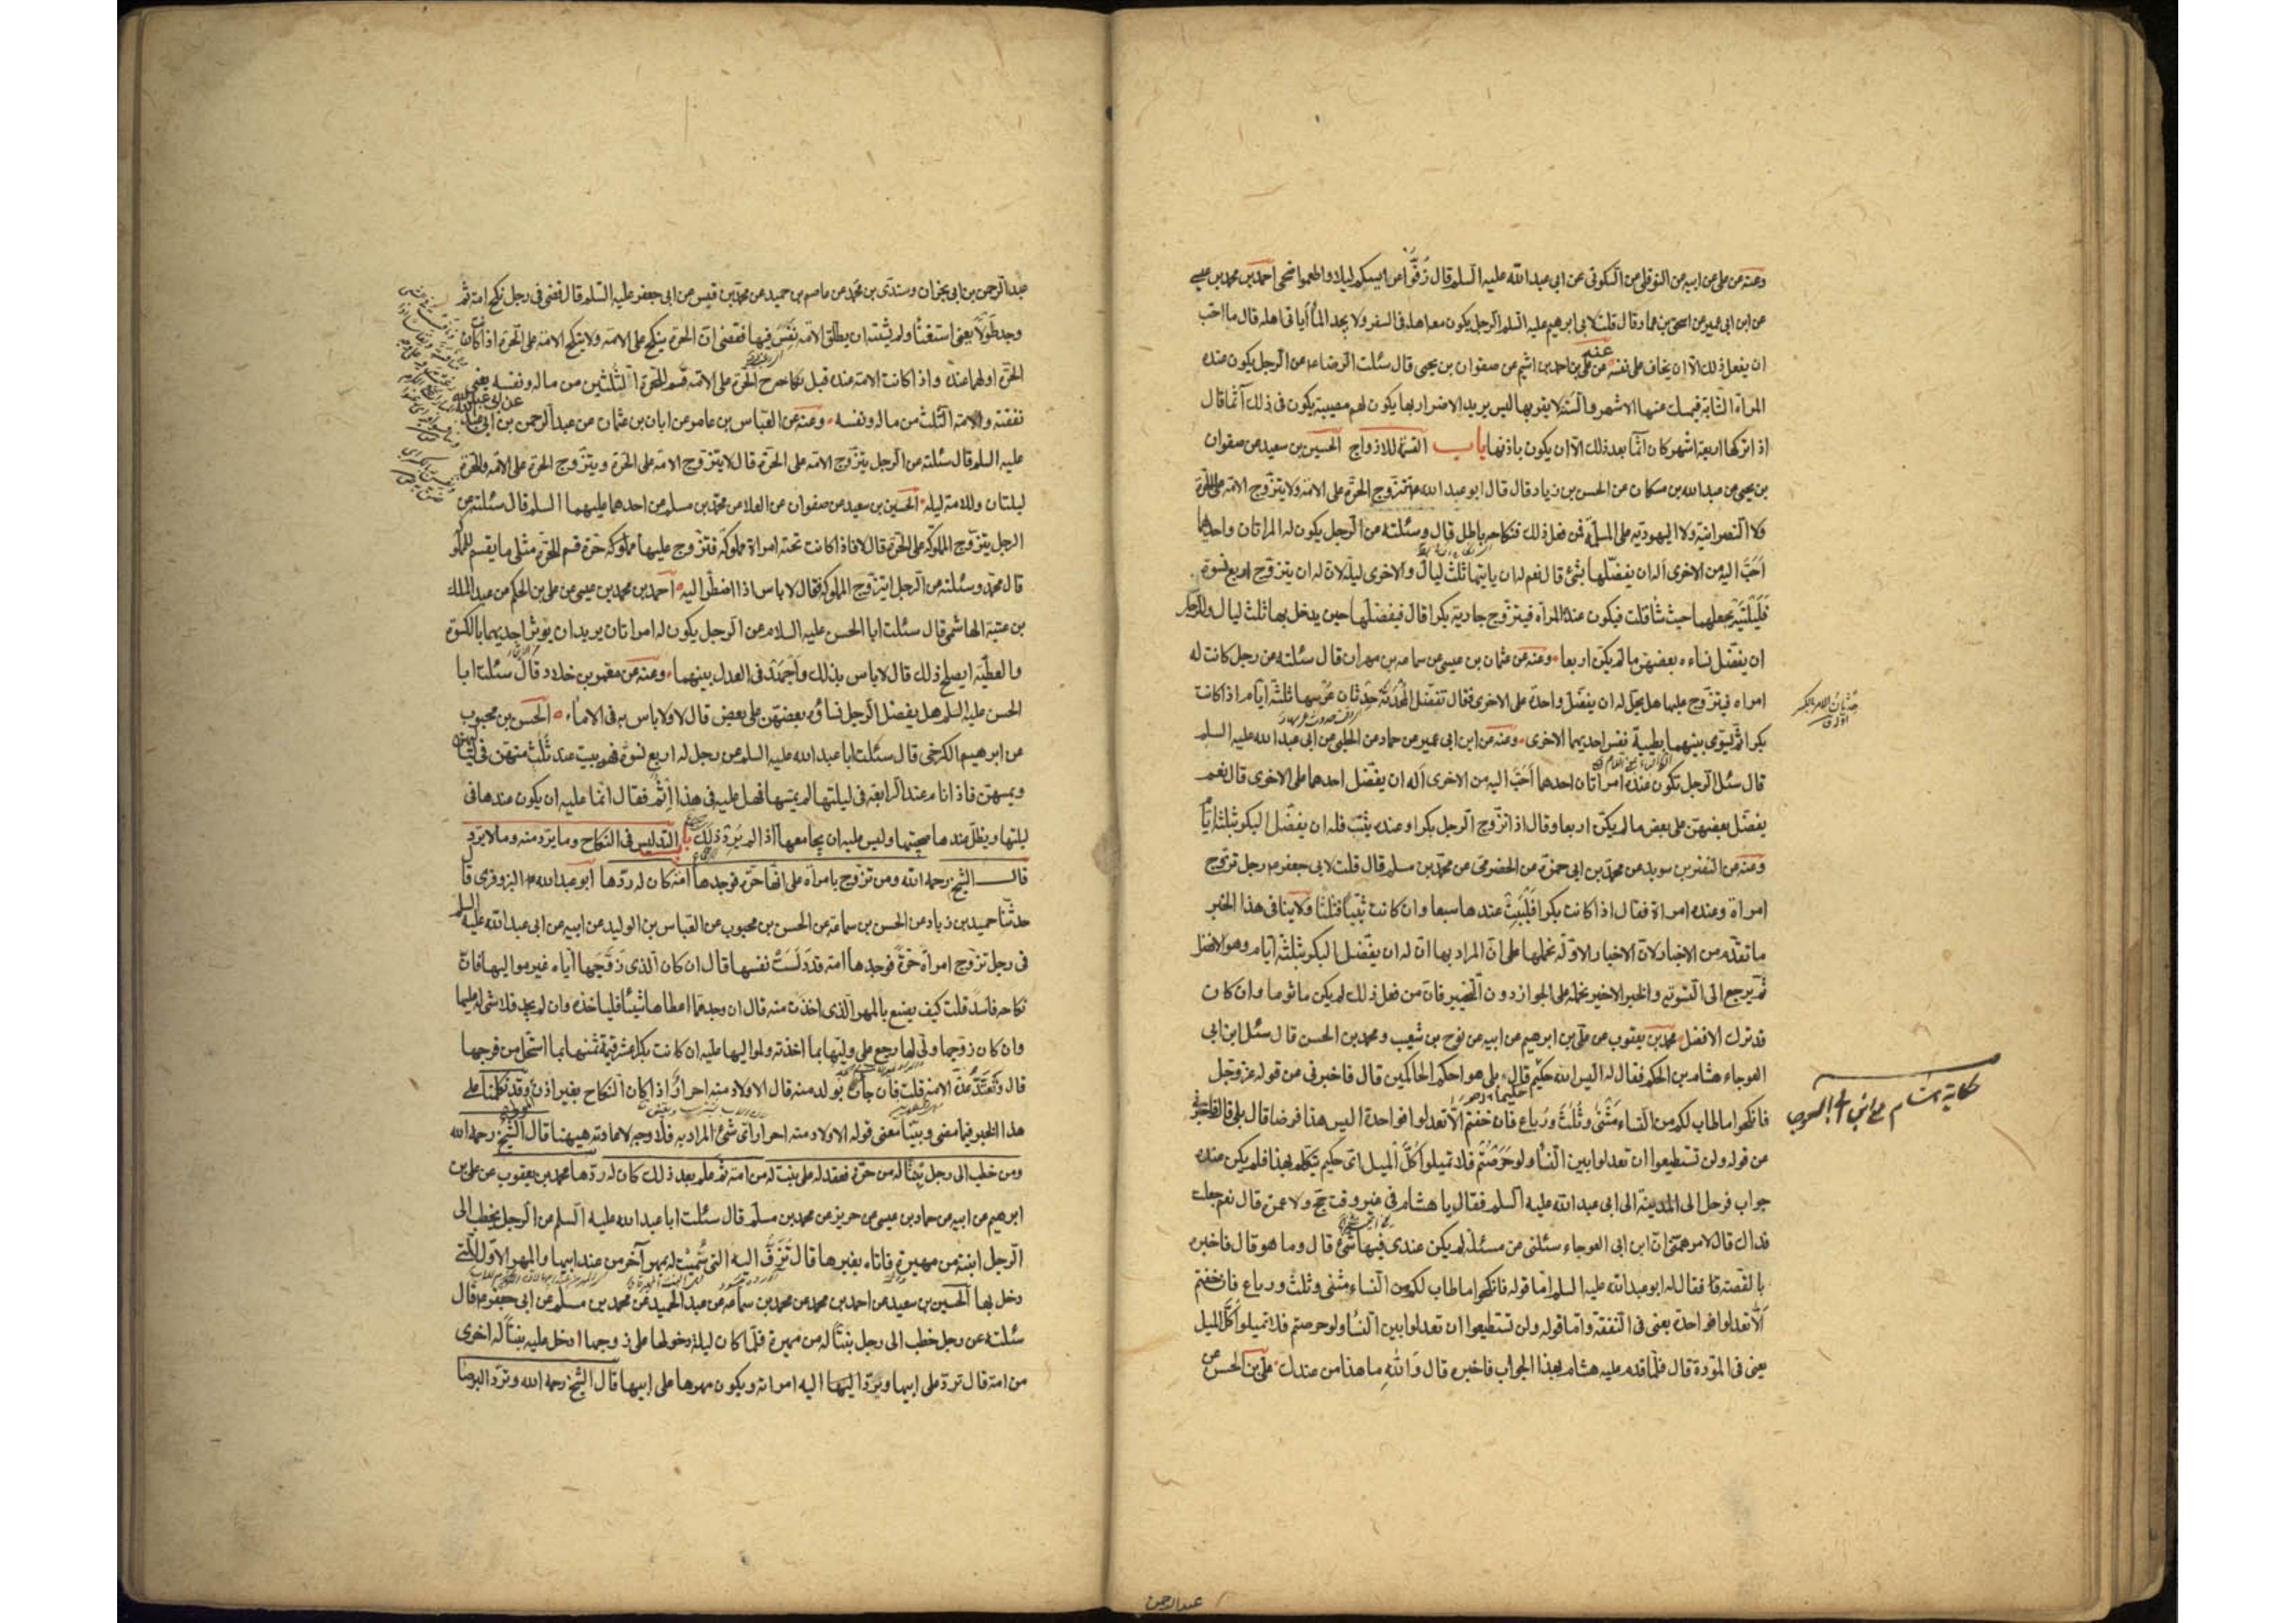 وعنه عن علي عن ابيه عن النوفلي عن السكوني عن ابي عبد الله عليه السلم قال زفوا عرايسكم ليلا واطعموا ضحى احمد بن محمد بن عيسى
عن ابن ابي عمير عن اسحق بن عمار قال قلت لابي ابرهيم عليه السلم الرجل يكون معه اهله في السفر ولا يجد الماء أيأتي اهله قال ما احب
ان يفعل ذلك الا ان يخاف على نفسه عنه عن علي بن احمد بن اشيم عن صفوان بن يحيى قال سئلت الرضا ءم عن الرجل يكون عنده
المرأة الشابة فيمسك عنها الاشهر والسنة لا يقربها ليس يريد الاضرار بها يكون لهم مصيبة يكون في ذلك آثما قال
اذا تركها اربعة اشهر كان آثما بعد ذلك الا ان يكون باذنها باب القسمة للازواج الحسين بن سعيد عن صفوان
بن يحيى عن عبد الله بن مسكان عن الحسن بن زياد قال قال ابو عبد الله ءم تتزوج الحرة على الامة ولا يتزوج الامة على الحرة
ولا النصرانية ولا اليهودية على المسلمة فمن فعل ذلك فنكاحه باطل قال وسئلته عن الرجل يكون له المراتان واحديهما
احب اليه من الاخرى اله ان يفضلها بشئ قال نعم له ان يأتيها ثلث ليال والاخرى ليلة لان له ان يتزوج اربع نسوة
فليلتيه يجعلهما حيث شاء قلت فيكون عنده المرأة فيتزوج جارية بكرا قال فيفضلها حين يدخل بها ثلث ليال وللرجل
ان يفضل نساءه بعضهن ما لم يكن اربعا وعنه عن عثمان بن عيسى عن سماعة بن مهران قال سئلته عن رجل كانت له
امراة فيتزوج عليها هل يحل له ان يفضل واحدة على الاخرى فقال تفضل المحدثة حدثان عرسها ثلثة ايام اذا كانت
بكرا ثم يسوى بينهما بطيبة نفس احديهما الاخرى وعنه عن ابن ابي عمير عن حماد عن الحلبي عن ابي عبد الله عليه السلم
قال سئل الرجل تكون عنده امراتان احدهما احب اليه من الاخرى أله ان يفضل احدهما على الاخرى قال نعم
يفضل بعضهن على بعض ما لم يكن اربعا وقال اذا تزوج الرجل بكرا وعنده ثيب فله ان يفضل البكر بثلثة ايام
وعنه عن النضر بن سويد عن محمد بن ابي حمزة عن الحضرمي عن محمد بن مسلم قال قلت لابي جعفر ءم رجل تزوج
امراة وعنده امراة فقال اذا كانت بكرا فليبت عندها سبعا وان كانت ثيبا فثلثا ولا ينافي هذا الخبر
ما تقدم من الاخبار لان الاخبار الاولة نحملها على ان المراد بها ان له ان يفضل البكر بثلثة ايام وهو الافضل
ثم يرجع الى التسوية والخبر الاخير نحمله على الجواز دون التخيير فان من فعل ذلك لم يكن ماثوما وان كان
قد ترك الافضل محمد بن يعقوب عن علي بن ابرهيم عن ابيه عن نوح بن شعيب ومحمد بن الحسن قال سئل ابن ابي
العوجاء هشام بن الحكم فقال له اليس الله حكيم قال بلى هو احكم الحاكمين قال فاخبرني عن قوله عز وجل
فانكحوا ما طاب لكم من النساء مثنى وثلث ورباع فان خفتم الا تعدلوا فواحدة اليس هذا فرضا قال بلى قال فاخبرني
عن قوله ولن تستطيعوا ان تعدلوا بين النساء ولو حرصتم فلا تميلوا كل الميل اي حكيم يتكلم بهذا فلم يكن عنده
جواب فرحل الى المدينة الى ابي عبد الله عليه السلم فقال يا هشام في غير وقت حج ولا عمرة قال نعم جعلت
فداك قال لامر همني ان ابن ابي العوجاء سئلني عن مسئلة لم يكن عندي فيها شئ قال وما هو قال فاخبره
بالقصة قا فقال له ابو عبد الله عليه السلم اما قوله فانكحوا ما طاب لكم من النساء مثنى وثلث ورباع فان خفتم
الا تعدلوا فواحدة يعني في النفقة واما قوله ولن تستطيعوا ان تعدلوا بين النساء ولو حرصتم فلا تميلوا كل الميل
يعني في المودة قال فلما قدم عليه هشام بهذا الجواب فاخبره قال والله ما هذا من عندك علي بن الحسن عن
حكاية هشام مع ابن ابي العوجا
عبد الرحمن
عبد الرحمن بن ابي نجران وسندي بن محمد عن عاصم بن حميد عن محمد بن قيس عن ابي جعفر عليه السلم قال قضى في رجل نكح امة ثم
وجد طولا يعني استغناء ولم يشته ان يطلق الامة نفس فيها فقضى ان الحرة ينكح على الامة ولا ينكح الامة على الحرة اذا كانت
الحرة اولهما عنده واذا كانت الامة عنده قبل نكاح الحرة على الامة قسم للحرة الثلثين من ماله ونفسه يعني
نفقته والامة الثلث من ماله ونفسه وعنه عن العباس بن عامر عن ابان بن عثمان عن عبد الرحمن بن ابي عبد الله عن ابي عبد الله
عليه السلم قال سئلته عن الرجل يتزوج الامة على الحرة قال لا يتزوج الامة على الحرة ويتزوج الحرة على الامة وللحرة
ليلتان وللامة ليلة الحسين بن سعيد عن صفوان عن العلا عن محمد بن مسلم عن احدهما عليهما السلم قال سئلته عن
الرجل يتزوج المملوكة على الحرة قال لا فاذا كانت تحته امراة مملوكة فتزوج عليها حرة قسم للحرة مثلي ما يقسم للمملوكة
قال محمد وسئلته عن الرجل ايتزوج المملوكة فقال لا باس اذا اضطر اليه احمد بن محمد بن عيسى عن علي بن الحكم عن عبد الملك
بن عتبة الهاشمي قال سئلت ابا الحسن عليه السلام عن الرجل يكون له امراتان يريد ان يؤثر احديهما بالكسوة
والعطية ايصلح ذلك قال لا باس بذلك واجهد في العدل بينهما وعنه عن معمر بن خلاد قال سئلت ابا
الحسن عليه السلم هل يفضل الرجل نساؤه بعضهن على بعض قال لا ولا باس به في الاماء الحسن بن محبوب
عن ابرهيم الكرخي قال سئلت ابا عبد الله عليه السلم عن رجل له اربع نسوة فهو يبيت عند ثلث منهن في لياليهن
ويمسهن فاذا نام عند الرابعة في ليلتها لم يمسها فهل عليه في هذا اثم فقال انما عليه ان يكون عندها في
ليلتها ويظل عندها صبيحتها وليس عليه ان يجامعها اذا لم يرد ذلك باب التدليس في النكاح وما يرد منه وما لا يرد
قال الشيخ رحمه الله ومن تزوج بامرأة على انها حرة فوجدها امة كان له ردها ابو عبد الله البزوفري قال
حدثنا حميد بن زياد عن الحسن بن سماعة عن الحسن بن محبوب عن العباس بن الوليد عن ابيه عن ابي عبد الله عليه السلم
في رجل تزوج امراة حرة فوجدها امة قد دلست نفسها قال ان كان الذي زوجها اياه غير مواليها فان
نكاحه فاسد قلت كيف يصنع بالمهر الذي اخذت منه قال ان وجد مما اعطاها شيئا فلياخذه وان لم يجد فلا شئ له عليها
وان كان زوجها ولي لها رجع على وليها بما اخذته ولمواليها عليه ان كانت بكرا عشر قيمة ثمنها بما استحل من فرجها
قال وتعتد عدة الامة قلت فان جاءت بولد منه قال الاولاد منه احرار اذا كان النكاح بغير اذن وقد تكلمنا على
هذا الخبر فيما مضى وبينا معنى قوله الاولاد منه احرار اي شئ المراد به فلا وجه لاعادته هيهنا قال الشيخ رحمه الله
ومن خطب الى رجل بنتا له من حرة فعقد له على بنت له من امة ثم علم بعد ذلك كان له ردها محمد بن يعقوب عن علي بن
ابرهيم عن ابيه عن حماد بن عيسى عن حريز عن محمد بن مسلم قال سئلت ابا عبد الله عليه السلم عن الرجل يخطب الى
الرجل ابنته من مهيرة فاتاه بغيرها قال تزف اليه التي سميت له بمهر آخر من عند ابيها والمهر الاول للتي
دخل بها الحسين بن سعيد عن احمد بن محمد عن محمد بن سماعة عن عبد الحميد عن محمد بن مسلم عن ابي جعفر ءم قال
سئلته عن رجل خطب الى رجل بنتا له من مهيرة فلما كان ليلة دخولها على زوجها ادخل عليه بنتا له اخرى
من امة قال ترد على ابيها ويرد اليها اليه امراته ويكون مهرها على ابيها قال الشيخ رحمه الله وترد البرصا